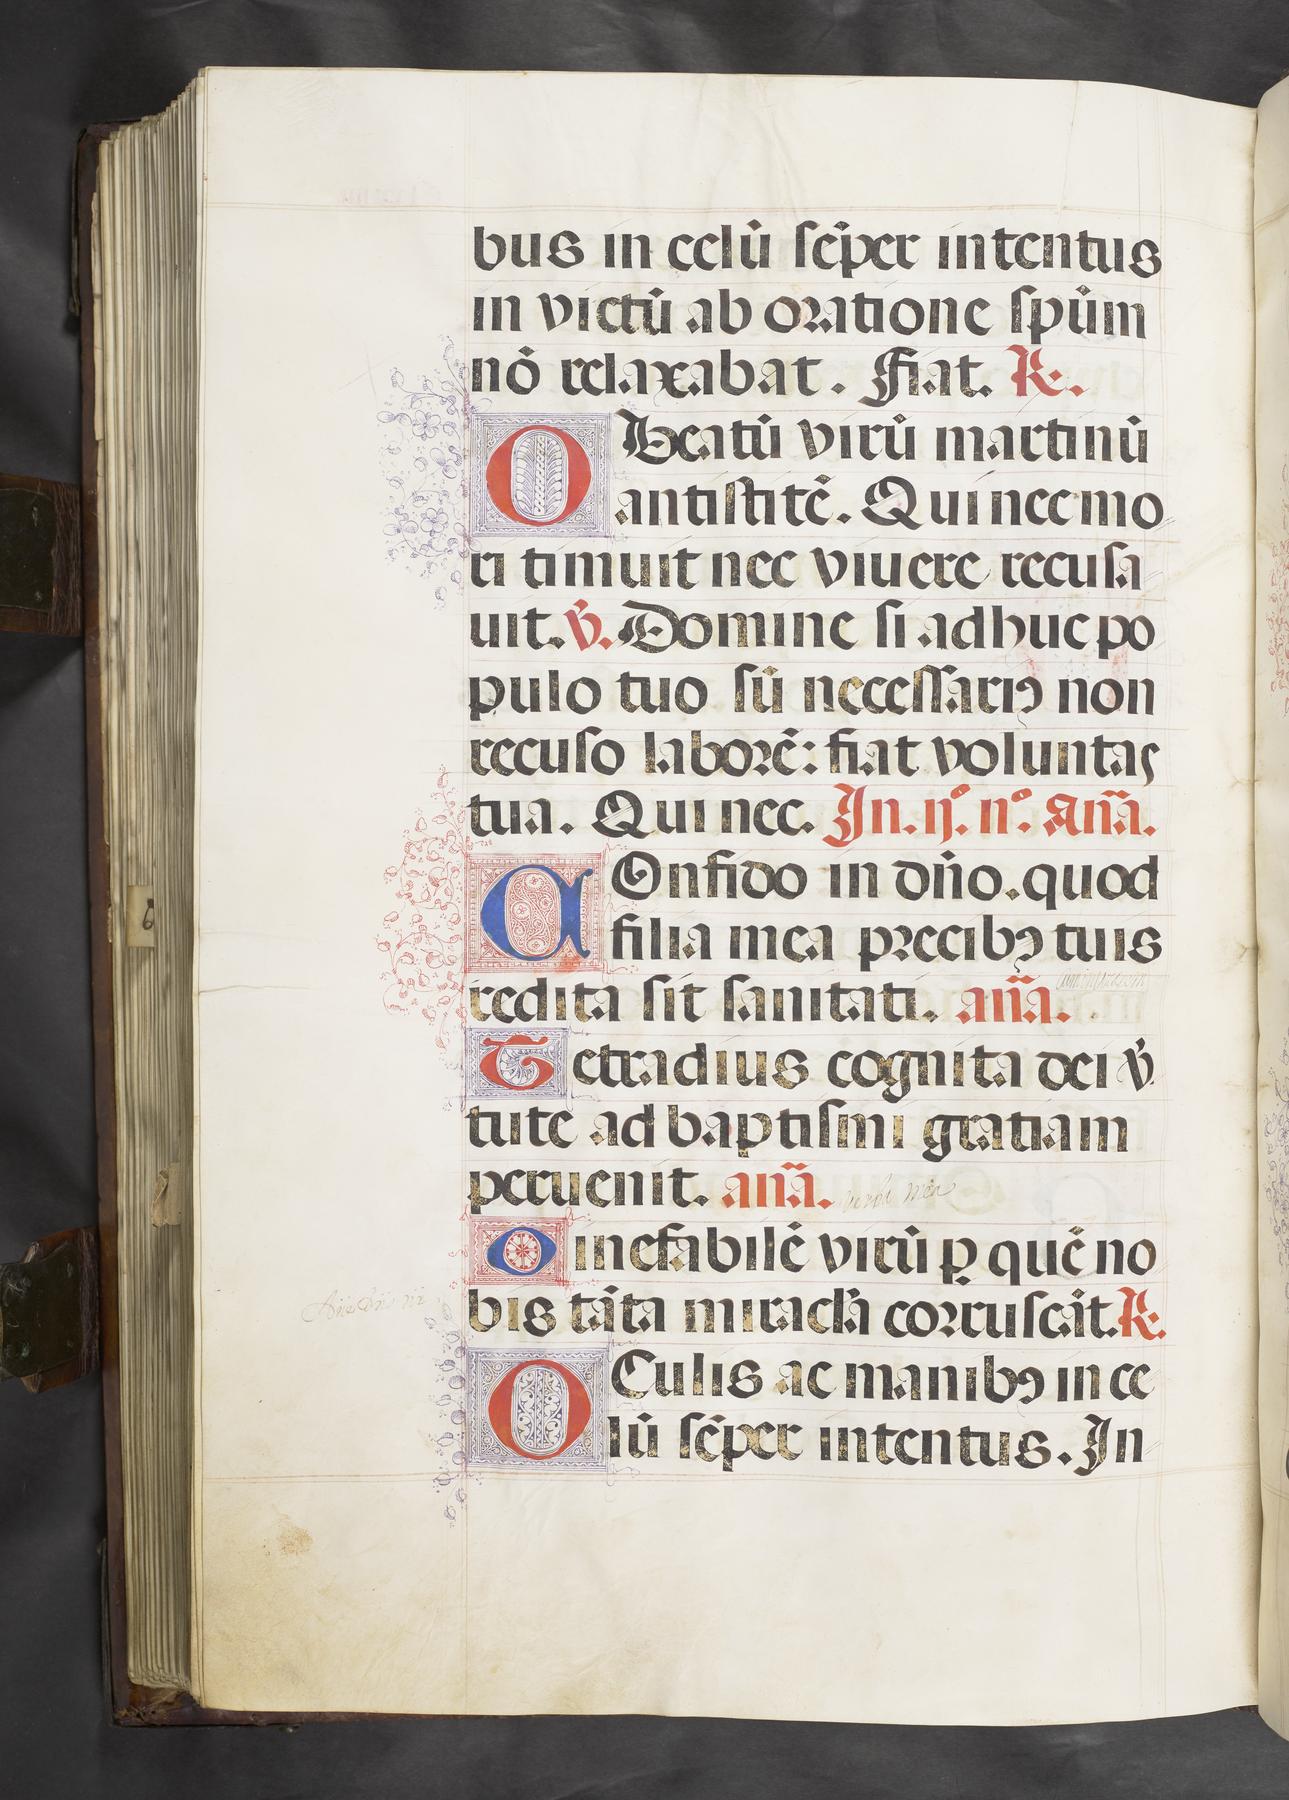 bus in celū sēper intentus
in victū ab oratione spūm
nō relaxabat . Fiat. R.
O Beatū virū martinū
antistitē. Qui nec mo
ri timuit nec viuere recusa
uit. v. Domine si adhuc po
pulo tuo sū necessariꝯ non
recuso laborē: fiat voluntas
tua. Qui nec. In. ij°. n°. Añā.
COnfido in dn̄o. quod
filia mea precibꝯ tuis
redita sit sanitati. añā.
Tetradius cognita dei v̄
tute ad baptismi gratiam
peruenit. añā. verba mea
O inefabilē virū ꝑ quē no
bis tāta miracl̄a corruscāt. R.
OCulis ac manibꝯ in ce
lū sēper intentus. In